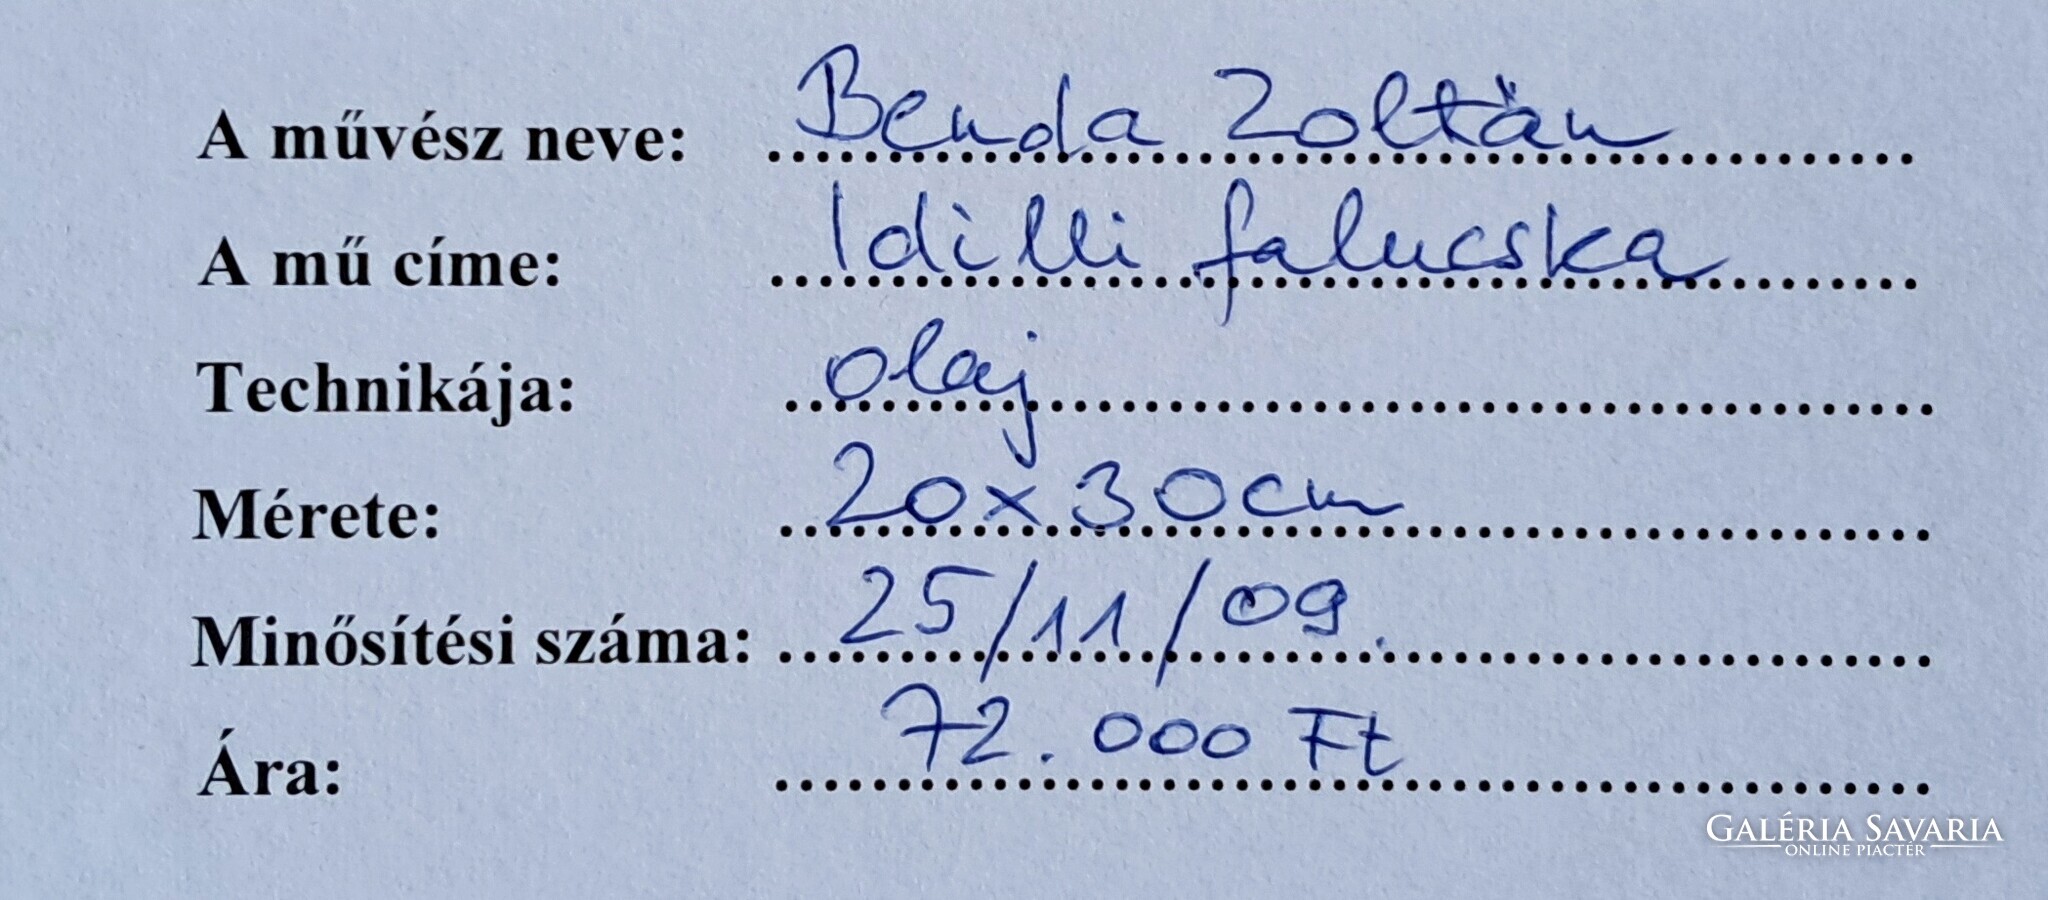 A művész neve: Benda Zoltán
A mű címe: Idilli falucska
Technikája: olaj
Mérete: 20x30cm
Minősítési száma: 25/11/09.
Ára: 72.000 Ft
GALÉRIA SAVARIA
ONLINE PIACTÉR